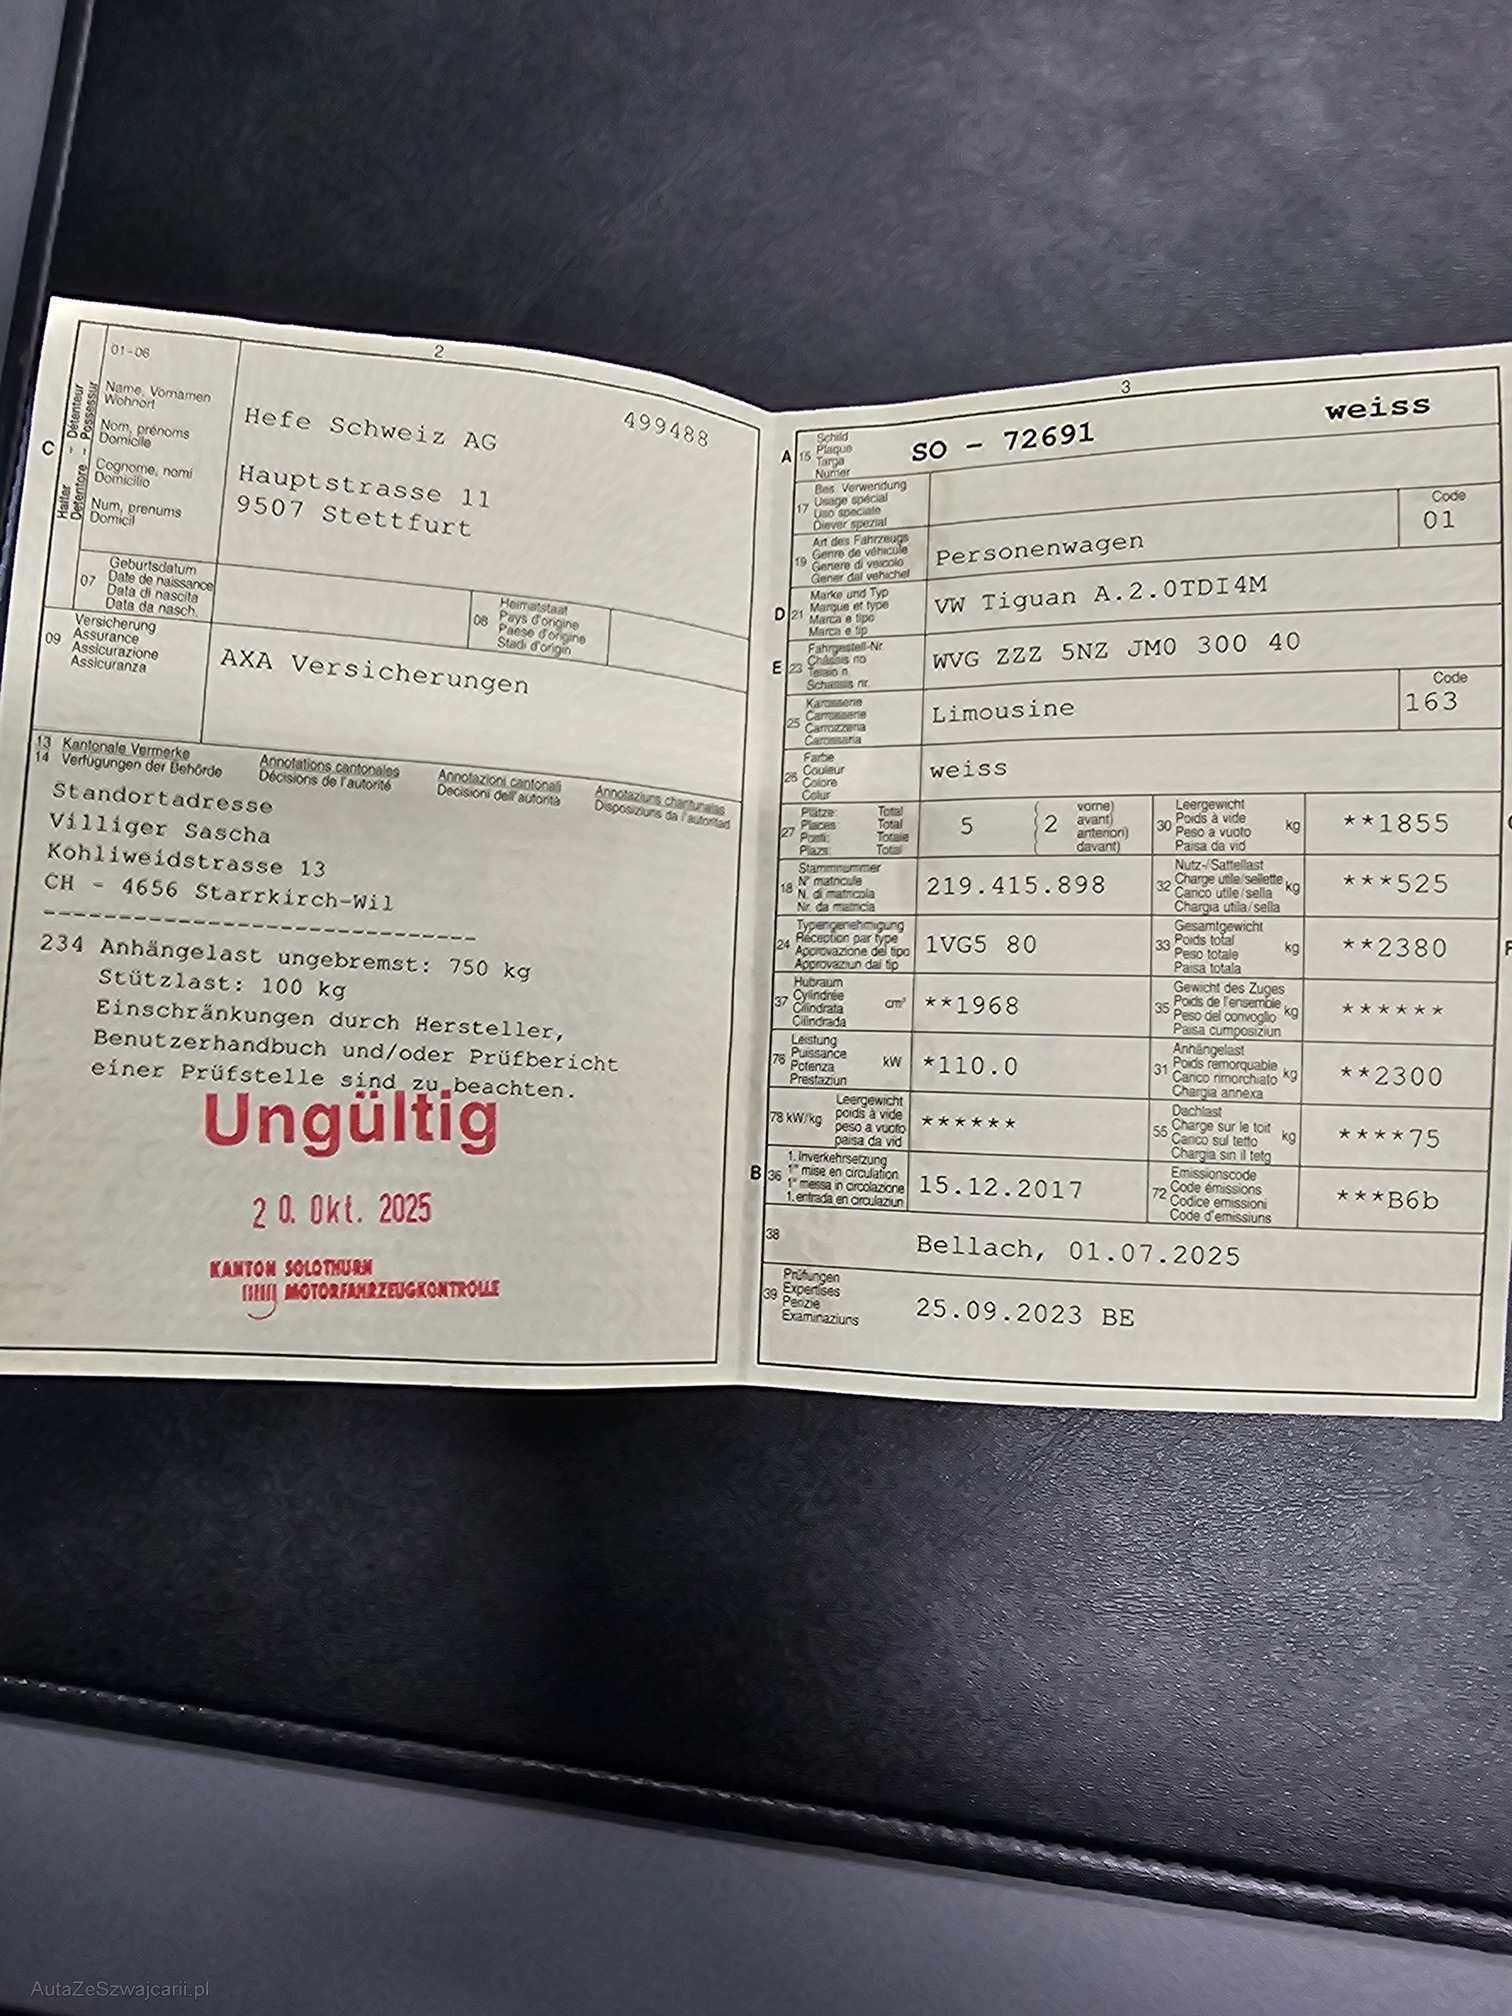 2
01-06
C
Halter - Détenteur
Detentore - Possessur
Name, Vornamen
Wohnort
Nom, prénoms
Domicile
Cognome, nomi
Domicilio
Num, prenums
Domicil
Hefe Schweiz AG
499488
Hauptstrasse 11
9507 Stettfurt
07
Geburtsdatum
Date de naissance
Data di nascita
Data da nasch.
08
Heimatstaat
Pays d'origine
Paese d'origine
Stadi d'origin
09
Versicherung
Assurance
Assicurazione
Assicuranza
AXA Versicherungen
13 Kantonale Vermerke
14 Verfügungen der Behörde
Annotations cantonales
Décisions de l'autorité
Annotazioni cantonali
Decisioni dell'autorità
Annotaziuns chantunalas
Disposiziuns da l'autoritad
Standortadresse
Villiger Sascha
Kohliweidstrasse 13
CH - 4656 Starrkirch-Wil
--------------------------------
234 Anhängelast ungebremst: 750 kg
Stützlast: 100 kg
Einschränkungen durch Hersteller,
Benutzerhandbuch und/oder Prüfbericht
einer Prüfstelle sind zu beachten.
Ungültig
20. Okt. 2025
KANTON SOLOTHURN
MOTORFAHRZEUGKONTROLLE
3
A 15
Schild
Plaque
Targa
Numer
SO - 72691
weiss
17
Bes. Verwendung
Usage spécial
Uso speciale
Diever spezial
19
Art des Fahrzeugs
Genre de véhicule
Genere di veicolo
Gener dal vehichel
Personenwagen
Code
01
D 21
Marke und Typ
Marque et type
Marca e tipo
Marca e tip
VW Tiguan A.2.0TDI4M
E 23
Fahrgestell-Nr.
Châssis no
Telaio n.
Schassis nr.
WVG ZZZ 5NZ JM0 300 40
25
Karosserie
Carrosserie
Carrozzeria
Carossaria
Limousine
Code
163
26
Farbe
Couleur
Colore
Colur
weiss
27
Plätze: Total
Places: Total
Posti: Totale
Plazs: Total
5
(2
vorne)
avant)
anteriori)
davant)
30
Leergewicht
Poids à vide
Peso a vuoto
Paisa da vid
kg
**1855
18
Stammnummer
N° matricule
N. di matricola
Nr. da matricla
219.415.898
32
Nutz-/Sattellast
Charge utile/sellette
Carico utile/sella
Chargia utila/sella
kg
***525
24
Typengenehmigung
Réception par type
Approvazione del tipo
Approvaziun dal tip
1VG5 80
33
Gesamtgewicht
Poids total
Peso totale
Paisa totala
kg
**2380
37
Hubraum
Cylindrée
Cilindrata
Cilindrada
cm³
**1968
35
Gewicht des Zuges
Poids de l'ensemble
Peso del convoglio
Paisa cumposiziun
kg
******
76
Leistung
Puissance
Potenza
Prestaziun
kW
*110.0
31
Anhängelast
Poids remorquable
Carico rimorchiato
Chargia annexa
kg
**2300
78 kW/kg
Leergewicht
poids à vide
peso a vuoto
paisa da vid
******
55
Dachlast
Charge sur le toit
Carico sul tetto
Chargia sin il tetg
kg
****75
B 36
1. Inverkehrsetzung
1re mise en circulation
1a messa in circolazione
1. entrada en circulaziun
15.12.2017
72
Emissionscode
Code émissions
Codice emissioni
Code d'emissiuns
***B6b
38
Bellach, 01.07.2025
39
Prüfungen
Expertises
Perizie
Examinaziuns
25.09.2023 BE
AutaZeSzwajcarii.pl